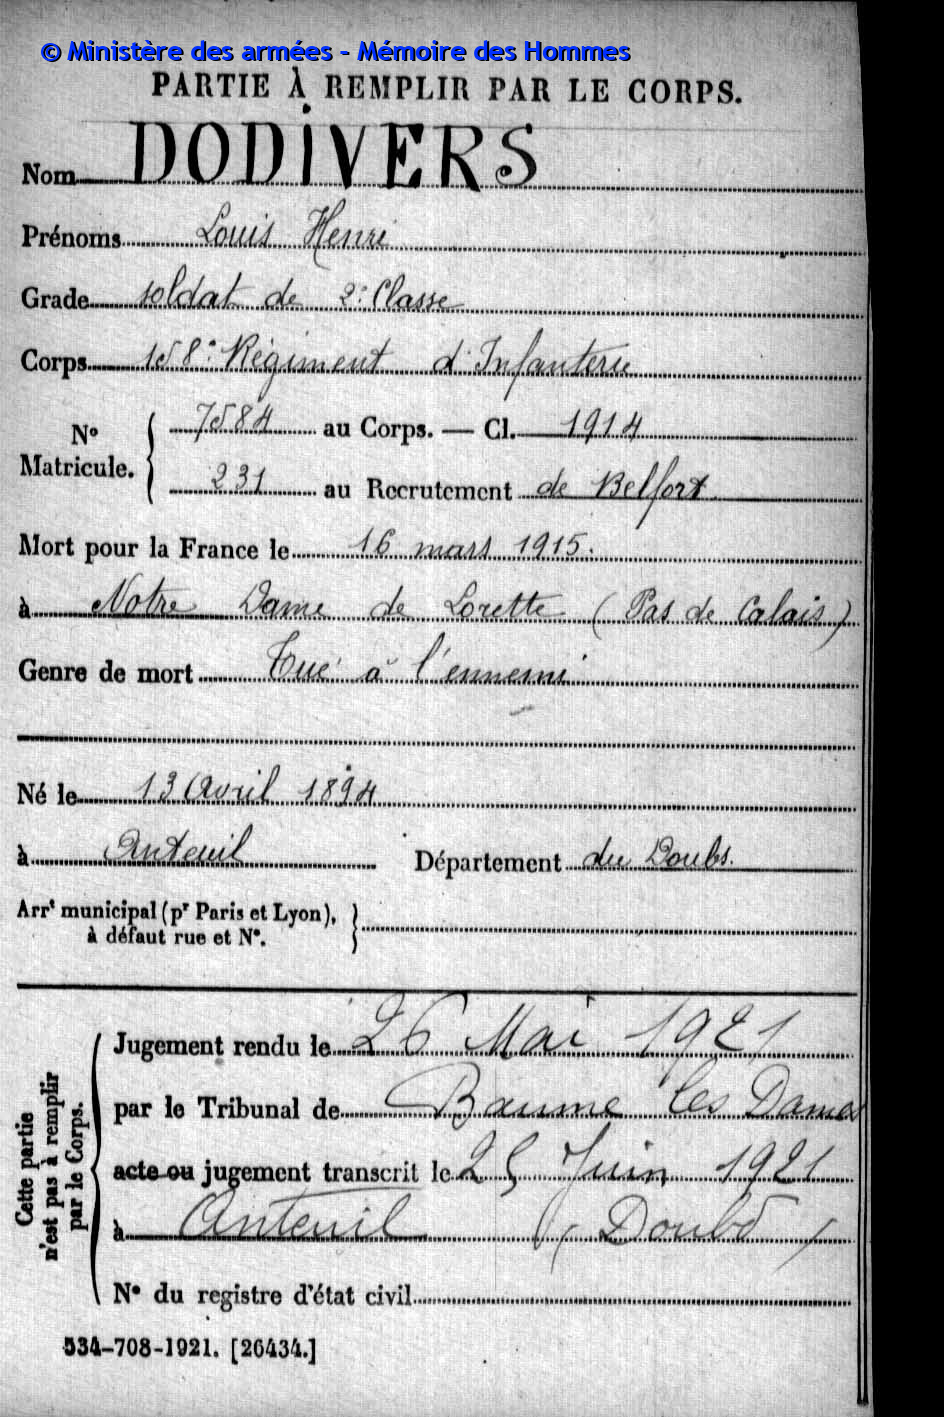 © Ministère des armées - Mémoire des Hommes
PARTIE À REMPLIR PAR LE CORPS.
Nom DODIVERS
Prénoms Louis Henri
Grade soldat de 2e Classe
Corps 158e Régiment d'Infanterie
No Matricule. { 7584 au Corps. — Cl. 1914
231 au Recrutement de Belfort
Mort pour la France le 16 mars 1915.
à Notre Dame de Lorette (Pas de Calais)
Genre de mort Tué à l'ennemi
Né le 13 Avril 1894
à Anteuil Département du Doubs.
Arrt municipal (pr Paris et Lyon),
à défaut rue et No. }
Cette partie
n'est pas à remplir
par le Corps.
Jugement rendu le 26 Mai 1921
par le Tribunal de Baume les Dames
acte ou jugement transcrit le 25 Juin 1921
à Anteuil (Doubs)
No du registre d'état civil
534-708-1921. [26434.]